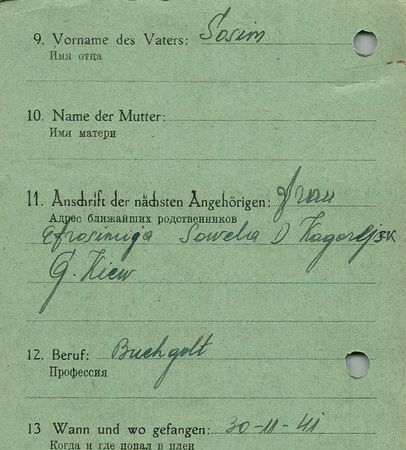 9. Vorname des Vaters: Sosim
Имя отца
10. Name der Mutter:
Имя матери
11. Anschrift der nächsten Angehörigen: Frau
Адрес ближайших родственников
Efrosiniga Sowela D
G. Kiew
12. Beruf:
Профессия
13 Wann und wo gefangen: 30-11-41
Когда и где попал в плен